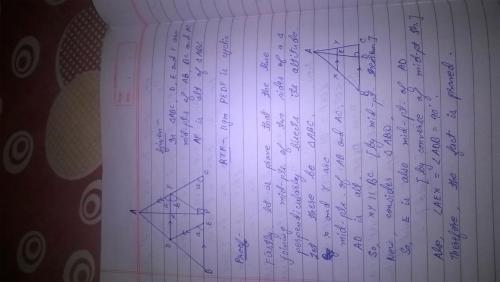 Given -
In ΔABC, D, E and F are
mid-pts of AB, BC and AC
AP is alt of ΔABC
RTP - llgm PEDF is cyclic
Proof -
Firstly let us prove that the line
joining mid-pts of two sides of a Δ
perpendicularly bisects its altitude.
Let there be ΔABC.
X and Y are
mid-pts of AB and AC.
AD is alt
So, XY || BC [By mid-pt theorem]
Now consider ΔABD
So, E is also mid-pt. of AD
[By converse of mid-pt th.]
Also, ∠AEX = ∠ADB = 90°.
Therefore, the fact is proved.